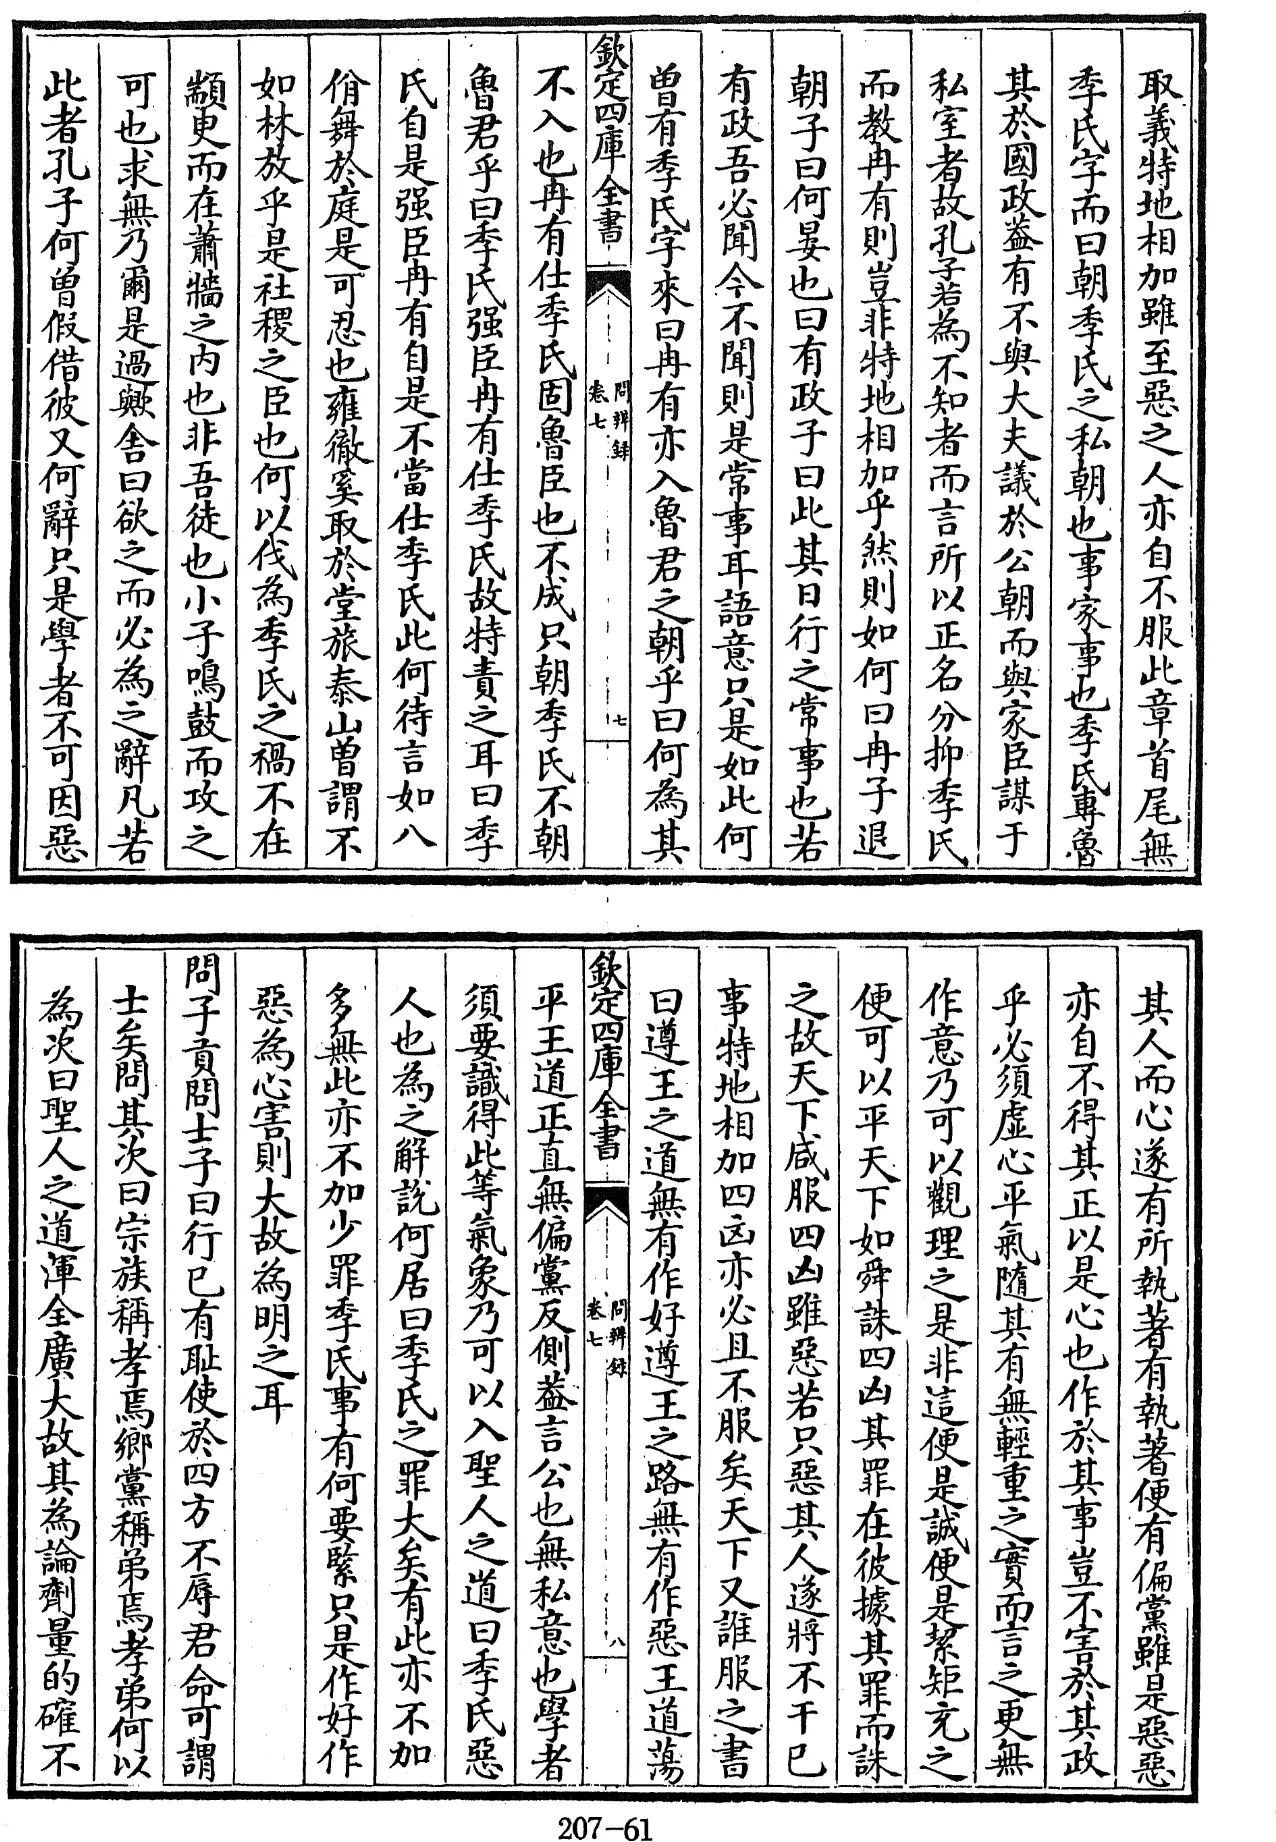 取義特地相加雖至惡之人亦自不服此章首尾無
季氏字而曰朝季氏之私朝也事家事也季氏專魯
其於國政葢有不與大夫議於公朝而與家臣謀于
私室者故孔子若為不知者而言所以正名分抑季氏
而教冉有則豈非特地相加乎然則如何曰冉子退
朝子曰何晏也曰有政子曰此其日行之常事也若
有政吾必聞今不聞則是常事耳語意只是如此何
曽有季氏字來曰冉有亦入魯君之朝乎曰何為其
欽定四庫全書
問辨録
卷七
七
不入也冉有仕季氏固魯臣也不成只朝季氏不朝
魯君乎曰季氏强臣冉有仕季氏故特責之耳曰季
氏自是强臣冉有自是不當仕季氏此何待言如八
佾舞於庭是可忍也雍徹奚取於堂旅泰山曽謂不
如林放乎是社稷之臣也何以伐為季氏之禍不在
顓臾而在蕭牆之内也非吾徒也小子鳴鼓而攻之
可也求無乃爾是過歟舎曰欲之而必為之辭凡若
此者孔子何曽假借彼又何辭只是學者不可因惡
其人而心遂有所執著有執著便有偏黨雖是惡惡
亦自不得其正以是心也作於其事豈不害於其政
乎必須虚心平氣隨其有無輕重之實而言之更無
作意乃可以觀理之是非這便是誠便是絜矩充之
便可以平天下如舜誅四凶其罪在彼據其罪而誅
之故天下咸服四凶雖惡若只惡其人遂將不干已
事特地相加四凶亦必且不服矣天下又誰服之書
曰遵王之道無有作好遵王之路無有作惡王道蕩
欽定四庫全書
問辨録
卷七
八
平王道正直無偏黨反側葢言公也無私意也學者
須要識得此等氣象乃可以入聖人之道曰季氏惡
人也為之解說何居曰季氏之罪大矣有此亦不加
多無此亦不加少罪季氏事有何要緊只是作好作
惡為心害則大故為明之耳
問子貢問士子曰行已有恥使於四方不辱君命可謂
士矣問其次曰宗族稱孝焉鄉黨稱弟焉孝弟何以
為次曰聖人之道渾全廣大故其為論劑量的確不
207-61